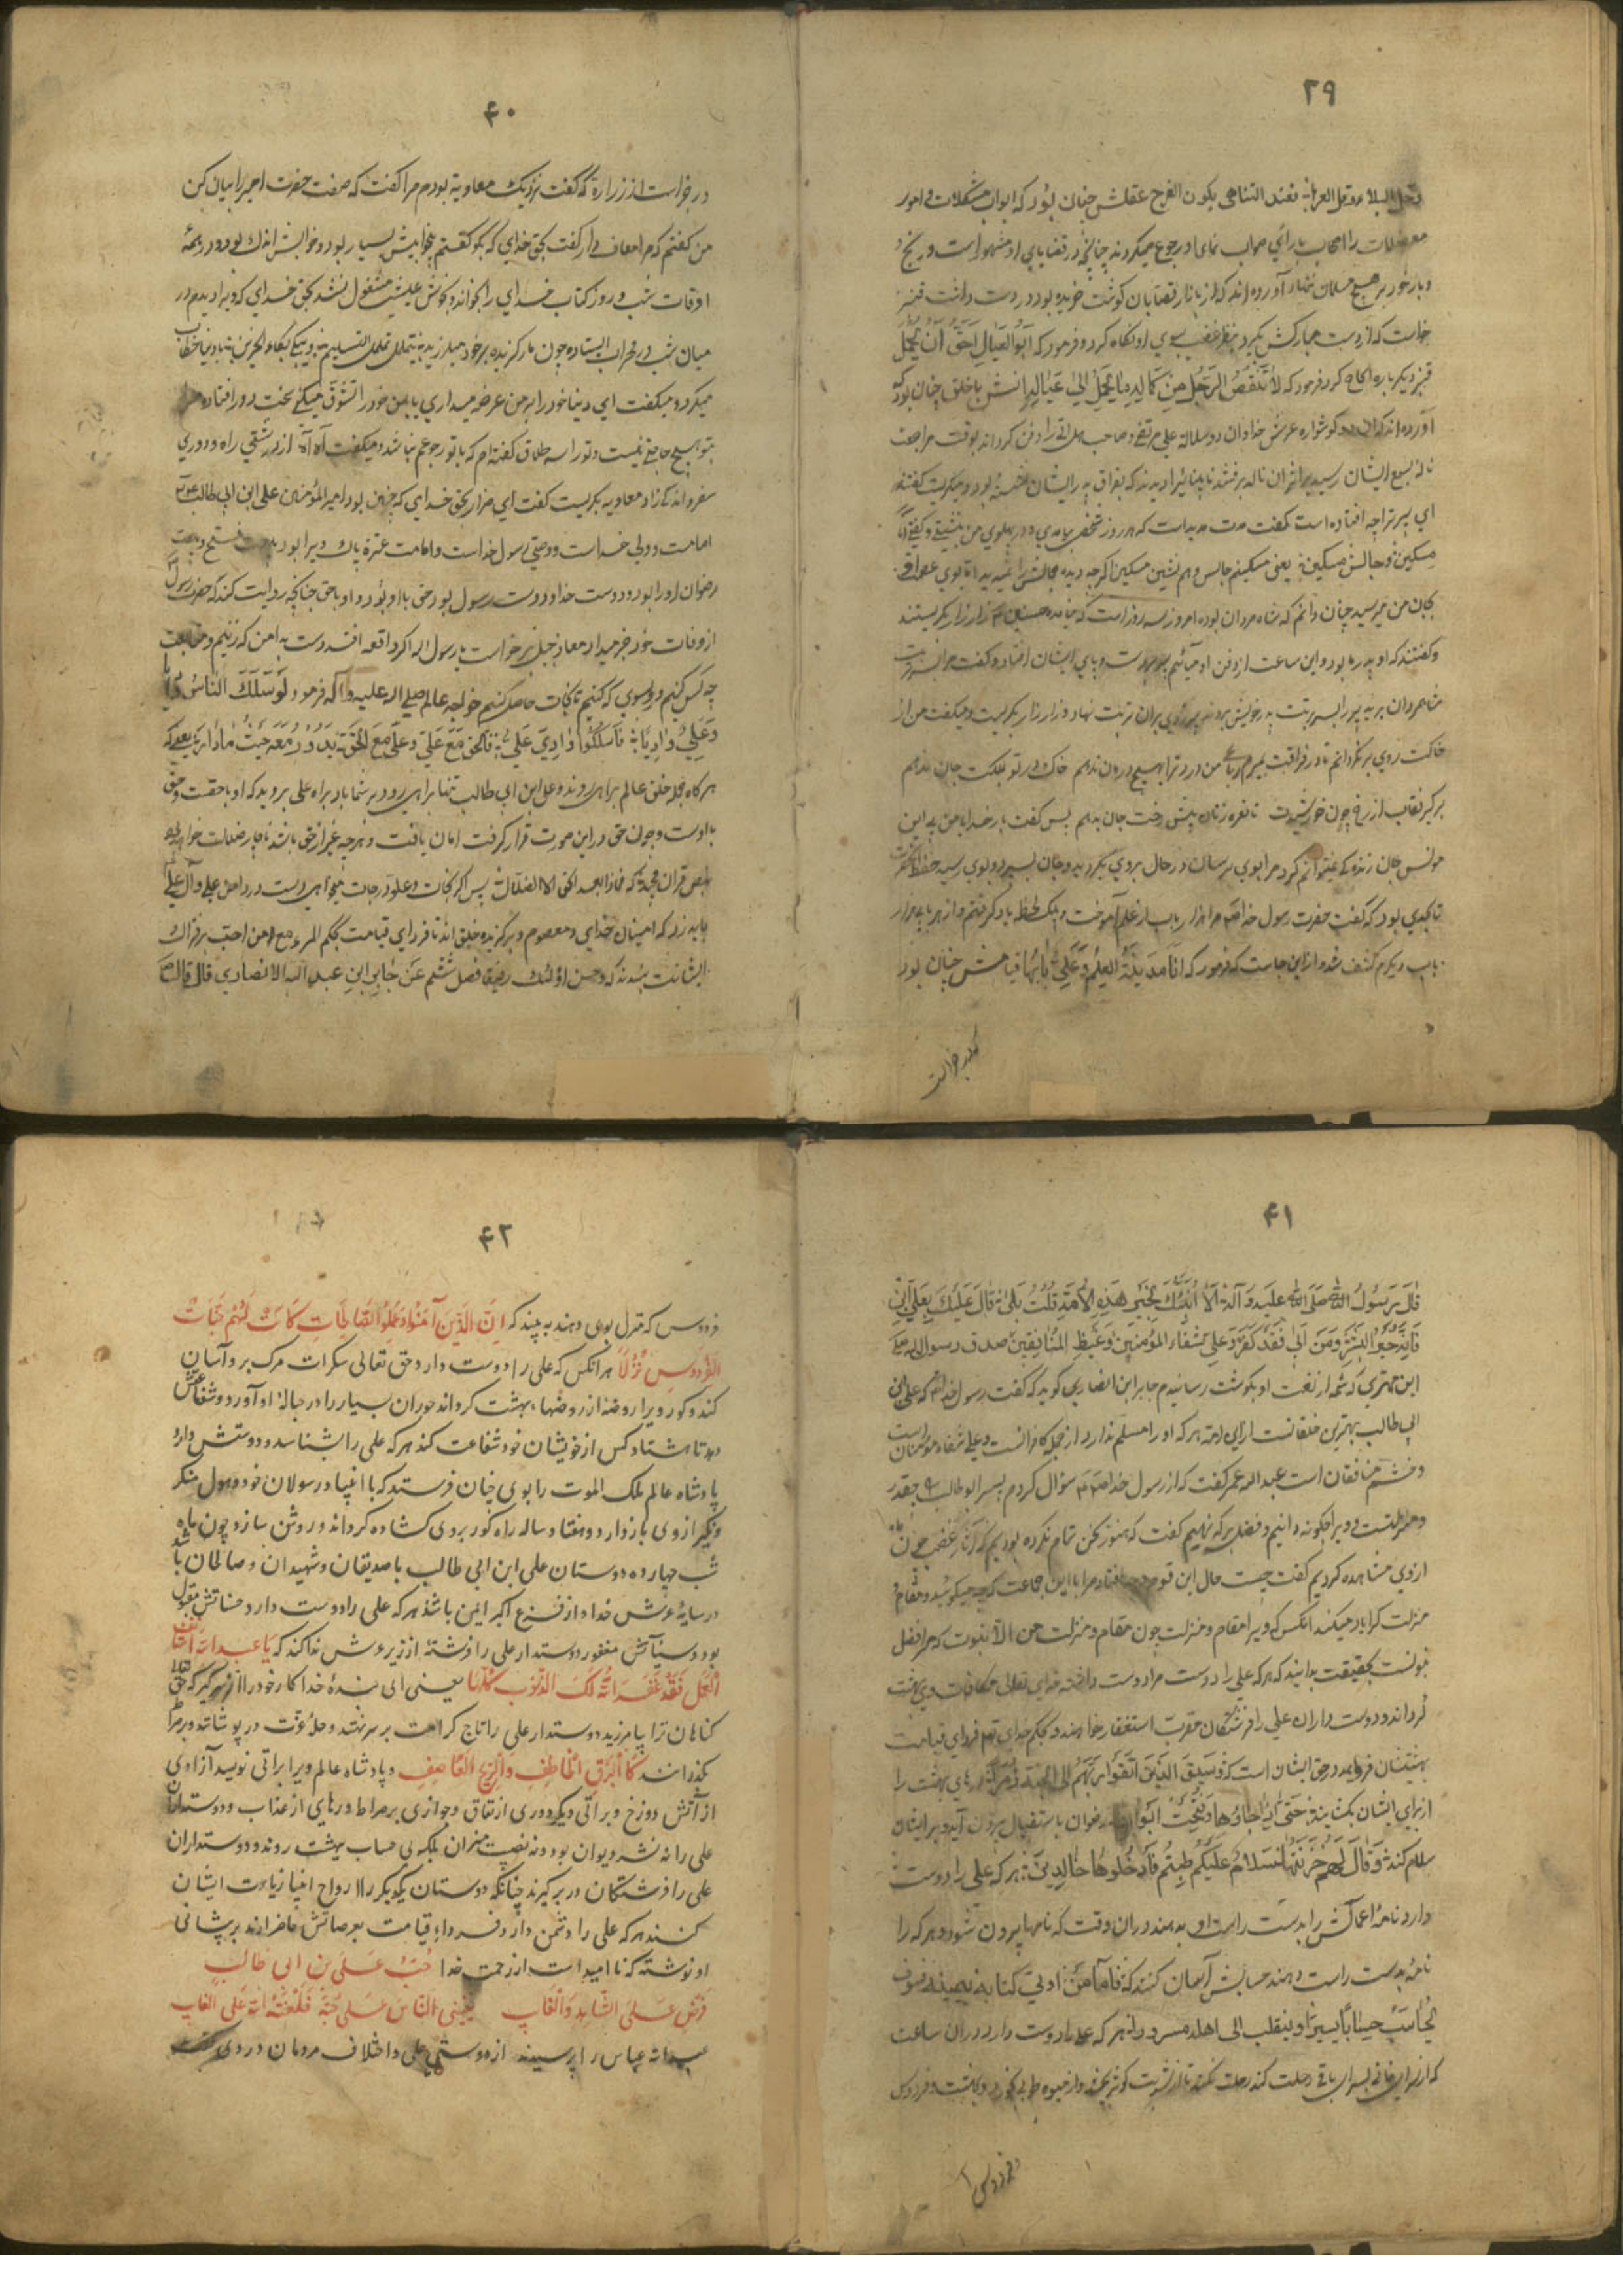 ۳۹
وتحل البلاء وتقل العزاء فعند التناهی یکون الفرج عقلش چنان بود که ابواب مشکلات و امور
معضلات را اصحاب با رأی صواب نمای او رجوع میکردند چنانچه در قضایای او مشهور است و رنج
و بار خود بر هیچ مسلمان ننهاد آورده اند که از بازار قصابان گوشت خریده بود در دست داشت قنبر
خواست که از دست مبارکش بگیرد بنظر غضب بسوی او نگاه کرد و فرمود که ابوالعیال احق ان یحمل
قنبر دیگر باره الحاح کرد فرمود که لا ینقص الرجل من کماله ما یحمل الی عیاله انسش با خلق چنان بود که
آورده اند که آن دو گوشواره عرش خدا و آن دو سلاله علی مرتضی و صاحب هل اتی را دفن کردند بوقت مراجعت
ناله بسمع ایشان رسید بر اثر آن ناله برفتند نابینائی را دیدند که بفراق
ای پیر ترا چه افتاده است گفت مدت مدید است که هر روز شخصی بیامدی و در پهلوی من بنشستی و گفتی انا
مسکین و جالس مسکین یعنی مسکینم جالس و هم نشین مسکین اگر چه دیده مجالش را نمیدید اما بوی
بجان من میرسید چنان دانم که شاه مردان بوده امروز سه روز است که نیامده حسنین زار زار بگریستند
و گفتند که او پدر ما بود و این ساعت از دفن او میآئیم پیر در دست و پای ایشان افتاد و گفت مرا بسر تربت
شاهزادان پیر را بسر تربت پدر خویش بردند پیر روی بر آن تربت نهاد و زار زار بگریست و میگفت من از
خاکت روی بر نگردانم تا در فراقت بمیرم رباعی من درد ترا بهیچ درمان ندهم خاک در تو بملکت جان ندهم
برگیر نقاب از رخ چون خورشیدت تا نعره زنان پیش رخت جان بدهم پس گفت بار خدایا من بی این
مونس جان زندگی نمیتوانم کرد مرا بوی برسان در حال بروی بگردید و جان بسپرد و بوی رسید
تا بحدی بود که گفت حضرت رسول خدا ص مرا هزار باب از علم آموخت و بیک لحظه یاد گرفتم و از هر باب هزار
باب دیگرم کشف شد و از این جاست که فرمود که انا مدینة العلم و علی بابها قیامش چنان بود
که درخواست
۴۰
درخواست از زراره که گفت نزدیک معاویه بودم مرا گفت که صفت حضرت امیر را بیان کن
من گفتم که مرا معاف دار گفت بحق خدای که بگو گفتم بیخوابیش بسیار بود و خوابش اندک بود و در همهٔ
اوقات شب و روز کتاب خدای را بخواند و بخوش عیشی مشغول نشد بحق خدای که ویرا دیدم در
میان شب در محراب ایستاده چون مار گزیده بر خود میلرزید یتململ تململ السلیم و یبکی بکاء الحزین و با دنیا خطاب
میکرد و میگفت ای دنیا خود را بر من عرضه میداری یا بمن خود را تشوق میکنی بخت دور افتاده مرا
بتو هیچ حاجتی نیست و ترا سه طلاق گفته ام که با تو رجوعم نباشد و میگفت آه آه از درشتی راه و دوری
سفر و اندکی زاد معاویه بگریست گفت ای ضرار بحق خدای که چنین بود امیر المؤمنین علی ابن ابی طالب
امامت و ولی خداست و وصی رسول خداست و امامت عترة پاک ویرا بود
رضوان او را بود و دوست خدا و دوست رسول بود حق با او بود و او با حق چنانچه روایت کنند که حضرت رسول
از وفات خود خبر میداد معاذ جبل برخواست یا رسول الله اگر واقعه افتد دست بدامن که زنیم و متابعت
چه کس کنیم و رو بسوی که کنیم تا نجات حاصل کنیم خواجه عالم صلی الله علیه و آله فرمود لو سلک الناس وادیا
و علی وادیا فاسلکوا وادی علی فالحق مع علی و علی مع الحق یدور معه حیث ما دار یعنی که
هر گاه جمله خلق عالم براهی روند و علی ابن ابی طالب تنها براهی رود بر شما باد براه علی بروید که او با حقست و حق
با اوست و چون حق در این صورت قرار گرفت امان یافت و هر چه غیر از حق باشد ناچار ضلالت خواهد بود
بنص قرآن مجید که فماذا بعد الحق الا الضلال پس اگر نجات و علو درجات میخواهی دست در دامن علی و آل علی
باید زد که امینان خدای و معصوم و برگزیده خلق اند تا فردای قیامت بحکم المرء مع من احب بر فتراک
ایشانت بندند که وحسن اولئک رفیقا فصل ششم عن جابر ابن عبد الله الانصاری قال قال
۴۱
قال رسول الله صلی الله علیه و آله الا انبئک بخیر هذه الامة قلت بلی قال علیک بعلی ابن
فانه خیر البشر و من ابی فقد کفر و علی شفاء المؤمنین و غیظ المنافقین صدق رسول الله
این مهتری که شمه از نعت او بگوشت رسانیدم جابر ابن انصاری گوید که گفت رسول خدا ص که علی ابن
ابی طالب بهترین خلقانست از این امة هر که او را مسلم ندارد از جمله کافرانست و علی شفاء مومنان است
و خشم منافقان است عبد الله عمر گفت که از رسول خدا ص سؤال کردم پسر ابو طالب را چقدر
و منزلتست و ویرا چگونه دانیم و فضل بر که نهیم گفت که هنوز سخن تمام نکرده بودیم که آثار غضب چون ماه
از وی مشاهده کردیم گفت چیست حال این قوم و چه افتاد مرا با این جماعت که چه میگویند و مقام و
منزلت که را یاد میکنند آنکس که ویرا مقام و منزلت چون مقام و منزلت من الا بنبوت که مرا فضل
نبوتست بحقیقت بدانید که هر که علی را دوست مرا دوست داشته خدای تعالی مکافات وی بهشت
گرداند و دوست داران علی را فرشتگان مقرب استغفار خواهند و بحکم خدای تع فردای قیامت
بهشتشان فرماید و در حق ایشان است که و سیق الذین اتقوا ربهم الی الجنة زمرا درهای بهشت را
از برای ایشان بگشایند حتی اذا جاؤها و فتحت ابوابها رضوان باستقبال بیرون آید و بر ایشان
سلام کند و قال لهم خزنتها سلام علیکم طبتم فادخلوها خالدین هر که علی را دوست
دارد نامهٔ اعمالش را بدست راست او بدهند در آن وقت که نامها پرون شود و هر که را
نامه بدست راست دهند حسابش آسان کنند که فاما من اوتی کتابه بیمینه فسوف
یحاسب حسابا یسیرا و ینقلب الی اهله مسرورا هر که علی را دوست دارد در آن ساعت
که از سرای فانی بسرای باقی رحلت کند رحلت نکند تا از شربت کوثر نچشد و از میوه طوبی نخورد و بهشت و فردوس
و فردوس
۴۲
فردوس که منزل بوی دهند به بیند که ان الذین آمنوا و عملوا الصالحات کانت لهم جنات
الفردوس نزلا هر آنکس که علی را دوست دارد حق تعالی سکرات مرگ بر وی آسان
کند و گور ویرا روضه از روضهاء بهشت گرداند حوران بسیار را در حبالهٔ او آورد و شفاعتش
دهد تا هشتاد کس از خویشان خود شفاعت کند هر که علی را بشناسد و دوستش دارد
پادشاه عالم ملک الموت را بوی چنان فرستد که با انبیا و رسولان خود و هول منکر
و نکیر از وی باز دارد و هفتاد ساله راه گور بر وی گشاده گرداند و روشن سازد چون ماه
شب چهارده دوستان علی ابن ابی طالب با صدیقان و شهیدان و صالحان باشد
در سایهٔ عرش خدا و از فزع اکبر ایمن باشد هر که علی را دوست دارد حسناتش مقبول
بود و سیئآتش مغفور دوستدار علی را فرشتهٔ از زیر عرش ندا کند که یا عبد الله استأنف
العمل فقد غفر الله لک الذنوب کلها یعنی ای بندهٔ خدا کار خود را از سر گیر که حق تعالی
گناهان ترا بیامرزید دوستدار علی را تاج کرامت بر سر نهند و حلهٔ عزت در پوشانند و بر صراط
گذرانند کالبرق الخاطف و الریح العاصف و پادشاه عالم ویرا براتی نویسد آزادی
از آتش دوزخ و براتی دیگر دوری از نفاق و جوازی بر صراط و رهای از عذاب و دوستداران
علی را نه نشر دیوان بود و نه نصب میزان بلکه بی حساب بهشت روند و دوستداران
علی را فرشتگان در بر گیرند چنانکه دوستان یکدیگر را ارواح انبیا زیارت ایشان
کنند هر که علی را دشمن دارد فرداء قیامت بعرصاتش حاضر آرند بر پیشانی
او نوشته که نا امید است از رحمت خدا حب علی بن ابی طالب
فرض علی الشاهد و الغایب یعنی الناس علی حبه فلعنة الله علی الغایب
عبد الله عباس را پرسیدند از دوستی علی و اختلاف مردمان در وی گفت